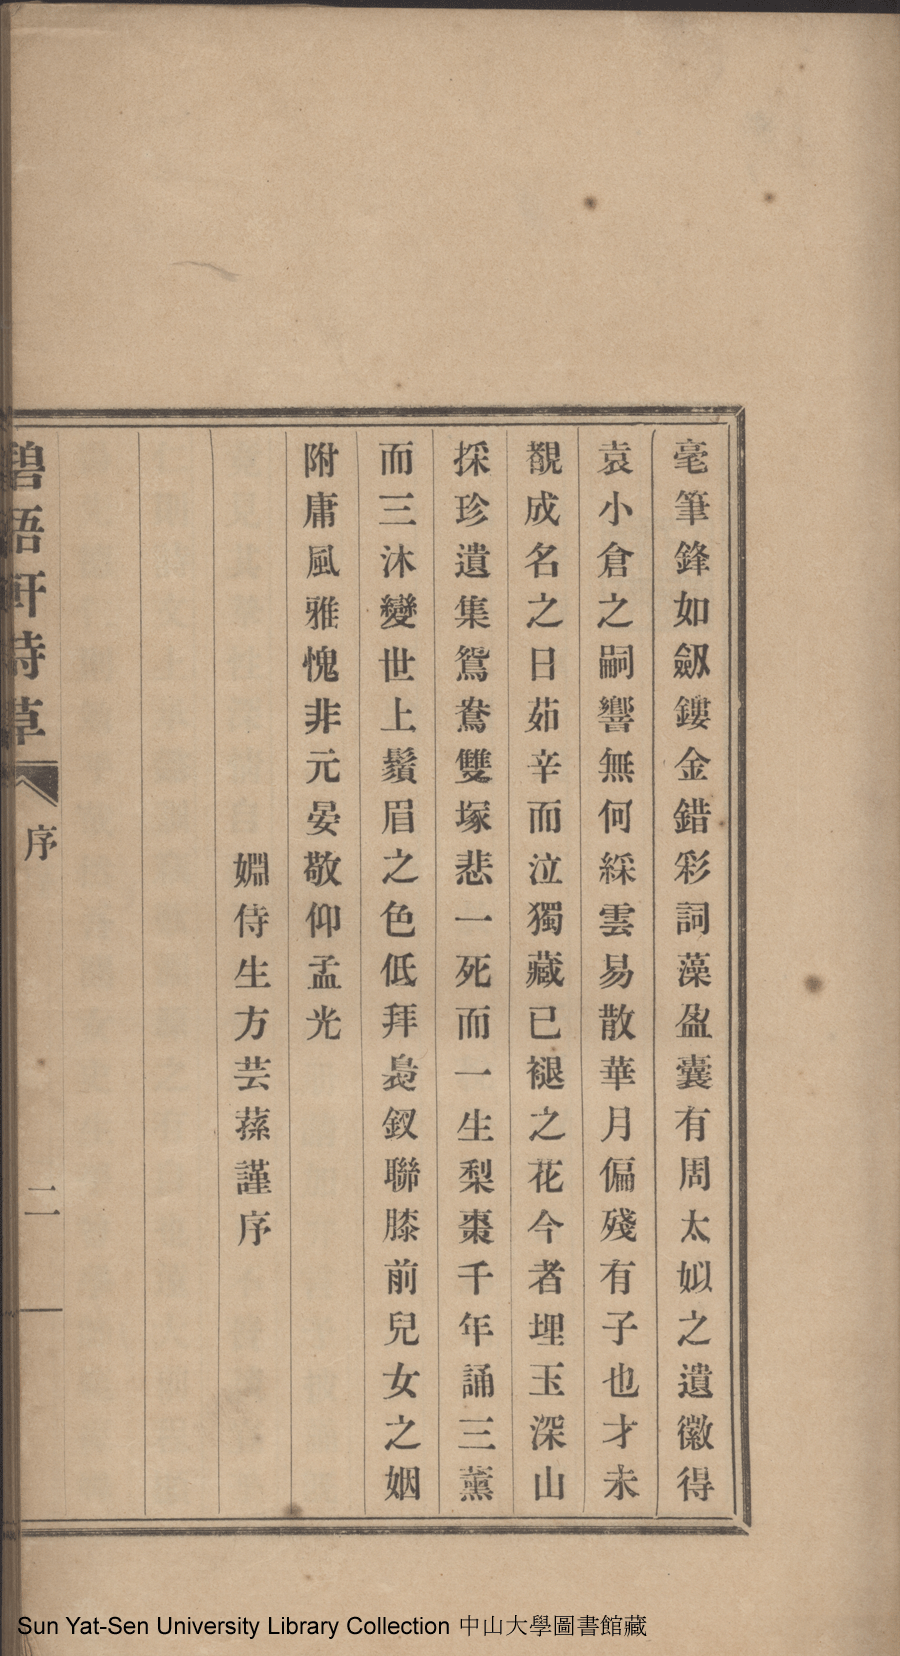 毫筆鋒如劔鏤金錯彩詞藻盈囊有周太姒之遺徽得
袁小倉之嗣響無何綵雲易散華月偏殘有子也才未
覩成名之日茹辛而泣獨藏已褪之花今者埋玉深山
採珍遺集鴛鴦雙塚悲一死而一生梨棗千年誦三薰
而三沐變世上鬚眉之色低拜裊釵聯膝前兒女之姻
附庸風雅愧非元晏敬仰孟光
姻侍生方芸蓀謹序
碧梧軒詩草
序
二
Sun Yat-Sen University Library Collection 中山大學圖書館藏